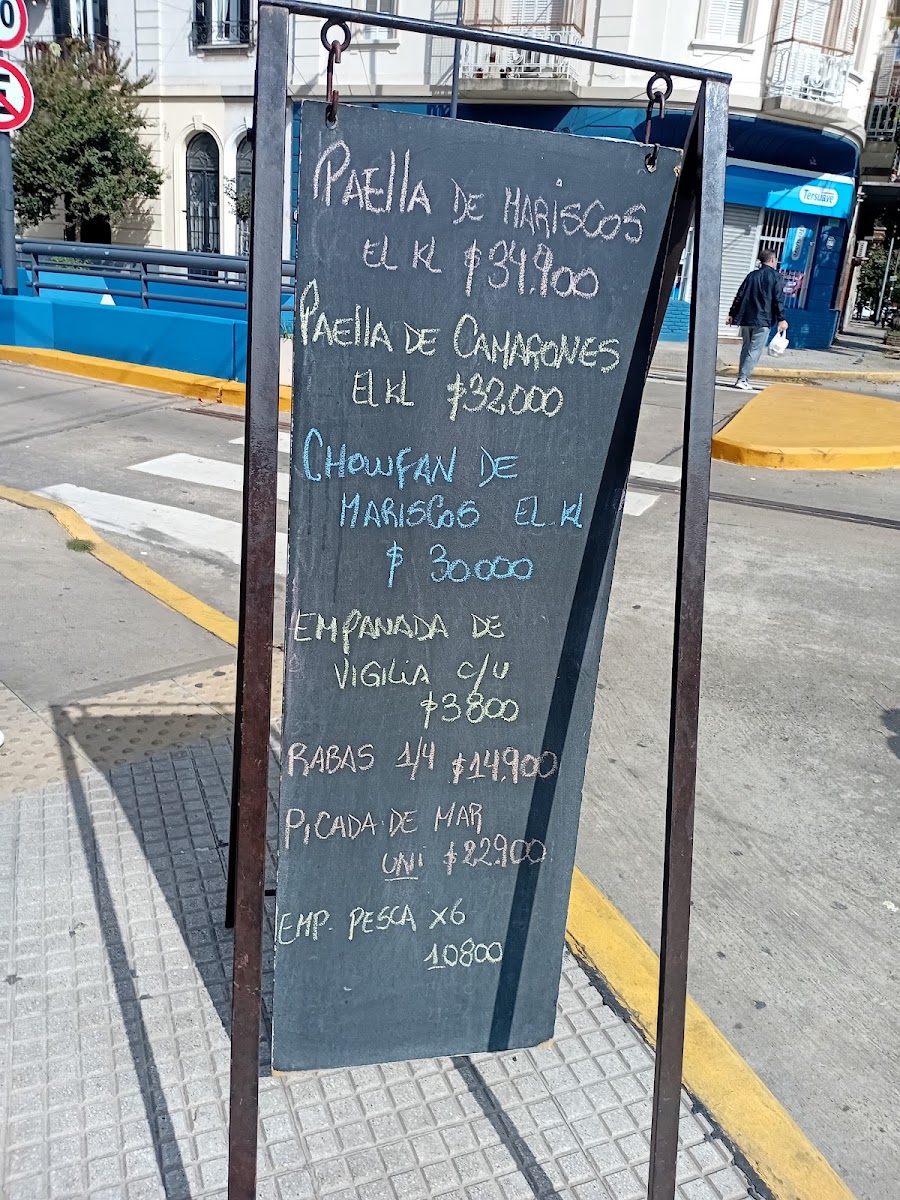 PAEllA DE MARISCOS
EL KL $34.900
PAEllA DE CAMARONES
EL KL $32.000
CHOWFAN DE
MARISCOS EL KL
$ 30.000
EMPANADA DE
VIGILIA c/u
$3800
RABAS 1/4 $14.900
PICADA DE MAR
UNI $22.900
EMP. PESCA X6
10800
Tersuave